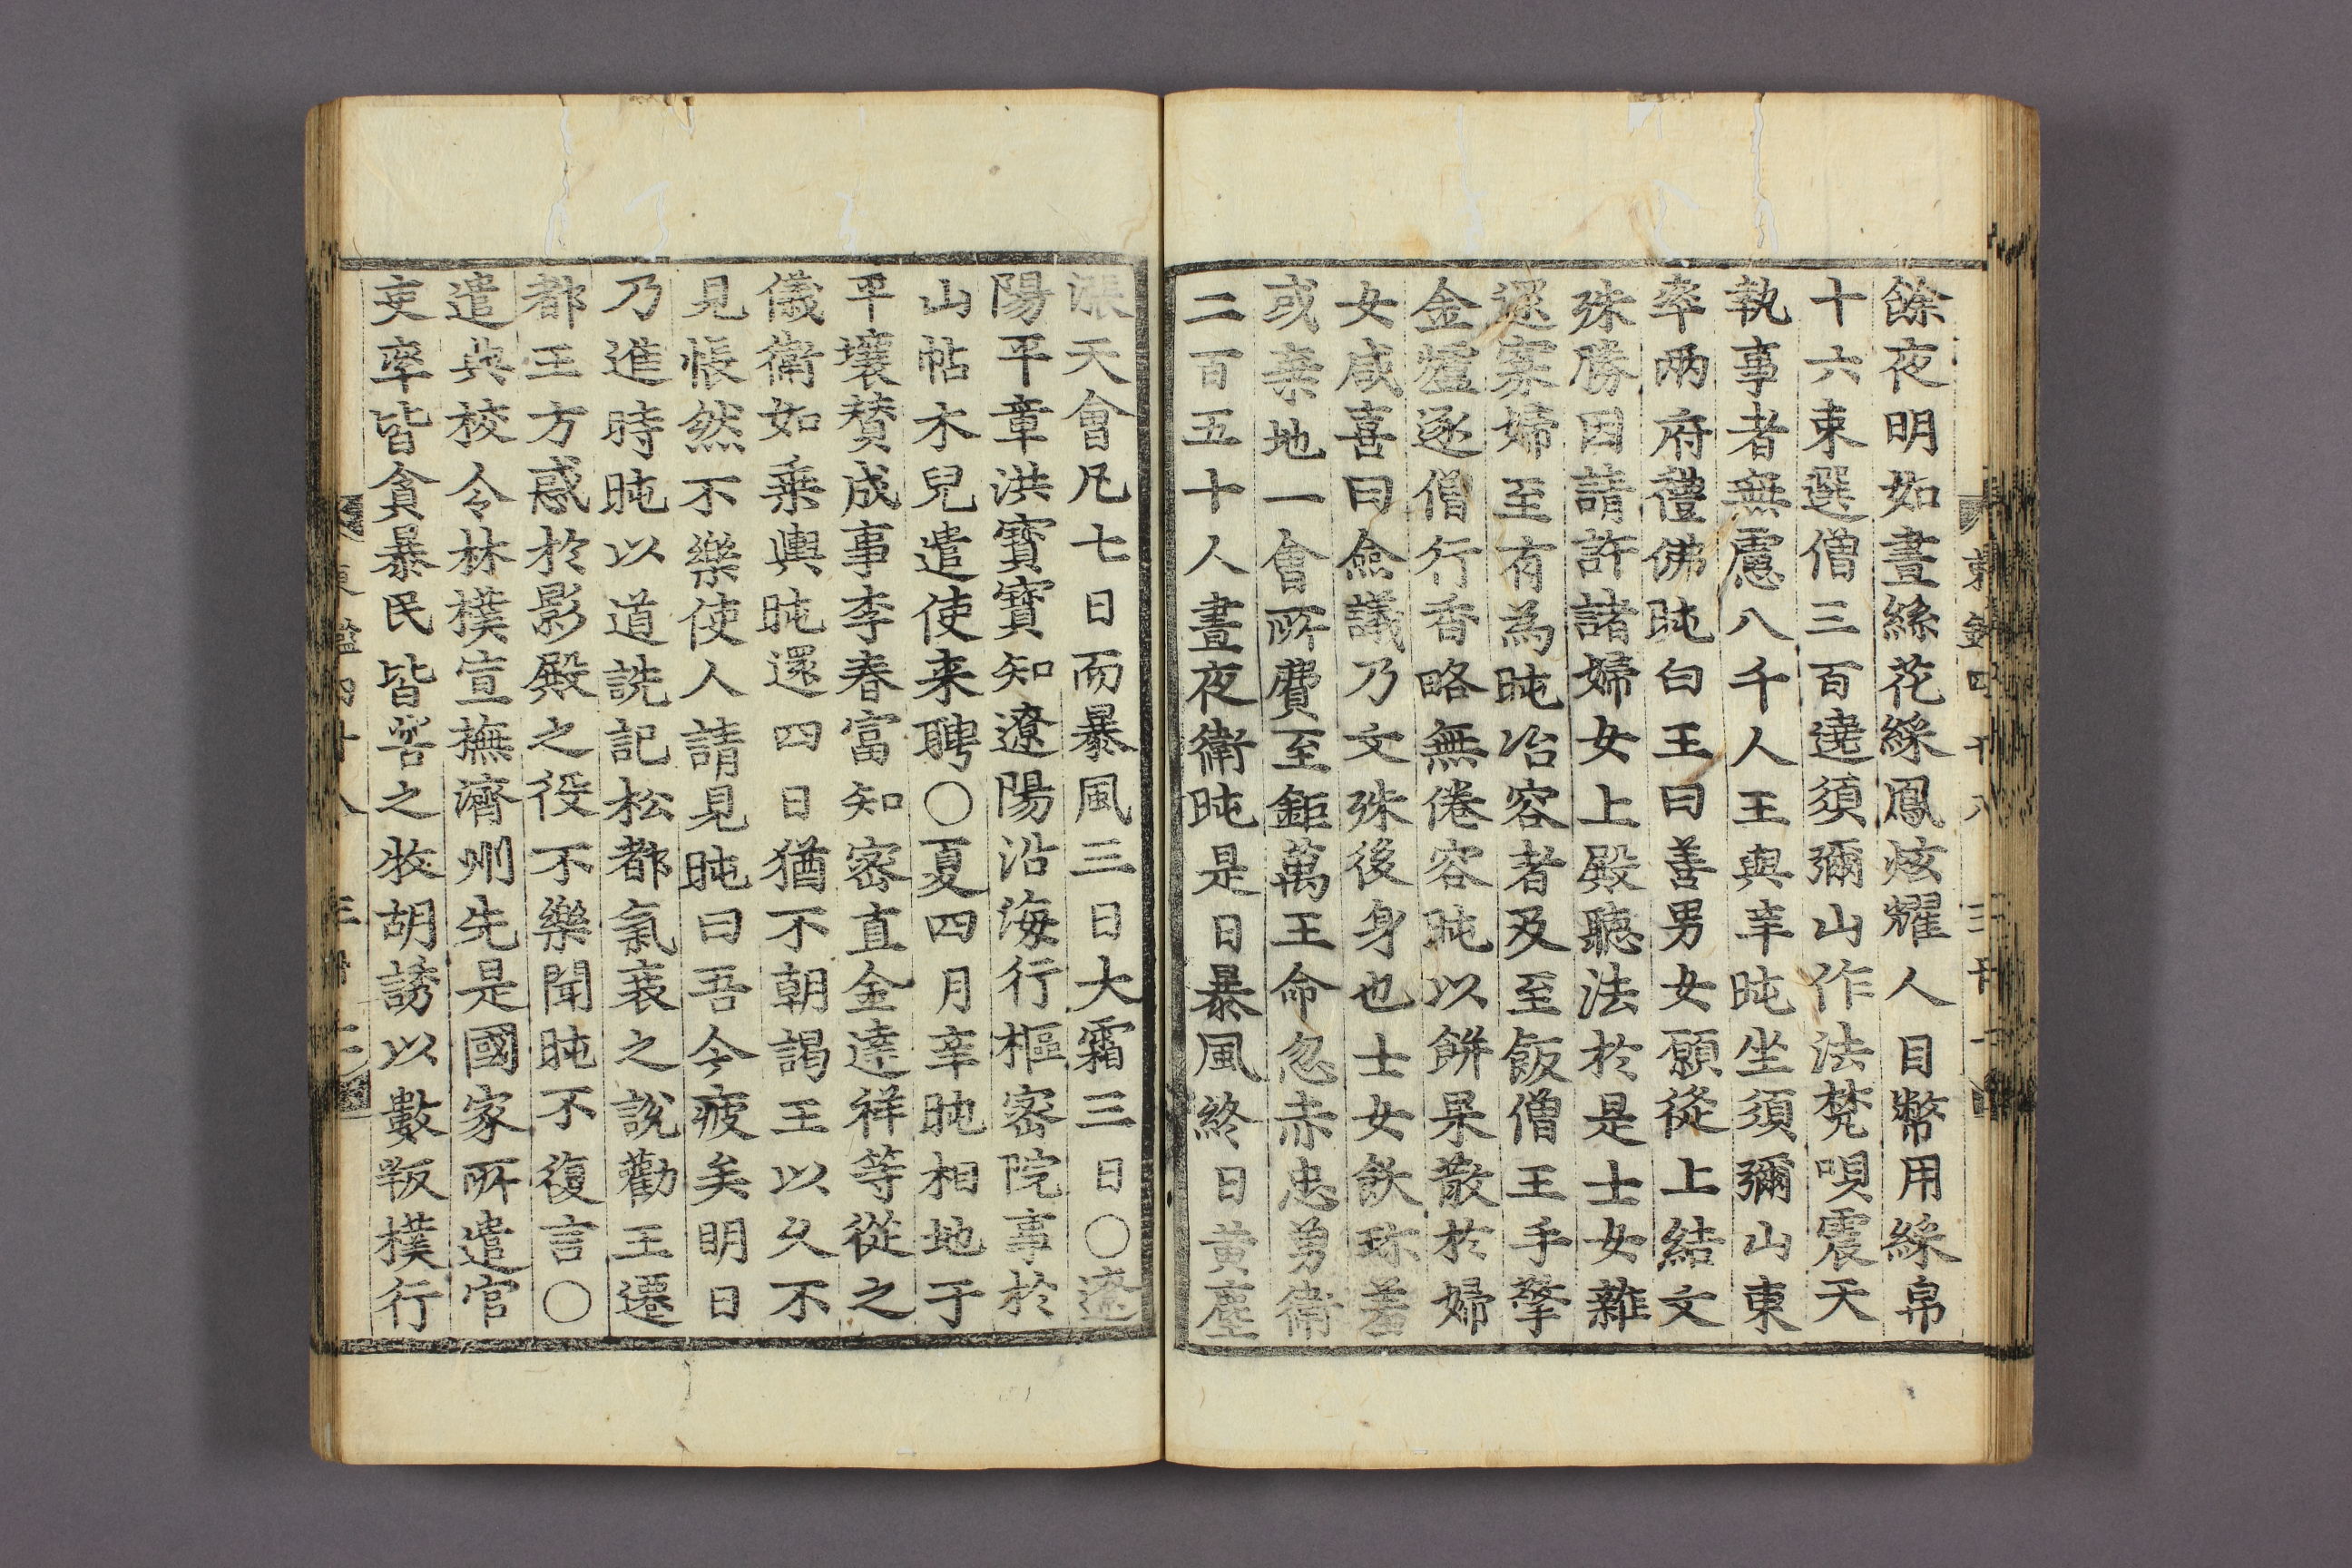 餘夜明如晝絲花綵鳳炫耀人目幣用綵帛
十六束選僧三百遶須彌山作法梵唄震天
執事者無慮八千人王與辛旽坐須彌山東
率兩府禮佛旽白王曰善男女願從上結文
殊勝因請許諸婦女上殿聽法於是士女雜
還寡婦至有為旽冶容者及至飯僧王手擎
金爐逐僧行香略無倦容旽以餅果散於婦
女咸喜曰僉議乃文殊後身也士女飫珎羞
或棄地一會所費至鉅萬王命忽赤忠勇衛
二百五十人晝夜衛旽是日暴風終日黃塵
漲天會凡七日而暴風三日大霜三日〇遼
陽平章洪寶寶知遼陽沿海行樞密院事於
山帖木兒遣使来聘〇夏四月辛旽相地于
平壤贊成事李春富知密直金達祥等從之
儀衛如乗輿旽還四日猶不朝謁王以久不
見悵然不樂使人請見旽曰吾今疲矣明日
乃進時旽以道詵記松都氣衰之說勸王遷
都王方惑於影殿之役不樂聞旽不復言〇
遣典校令林樸宣撫濟州先是國家所遣官
吏率皆貪暴民皆苦之牧胡誘以數叛樸行